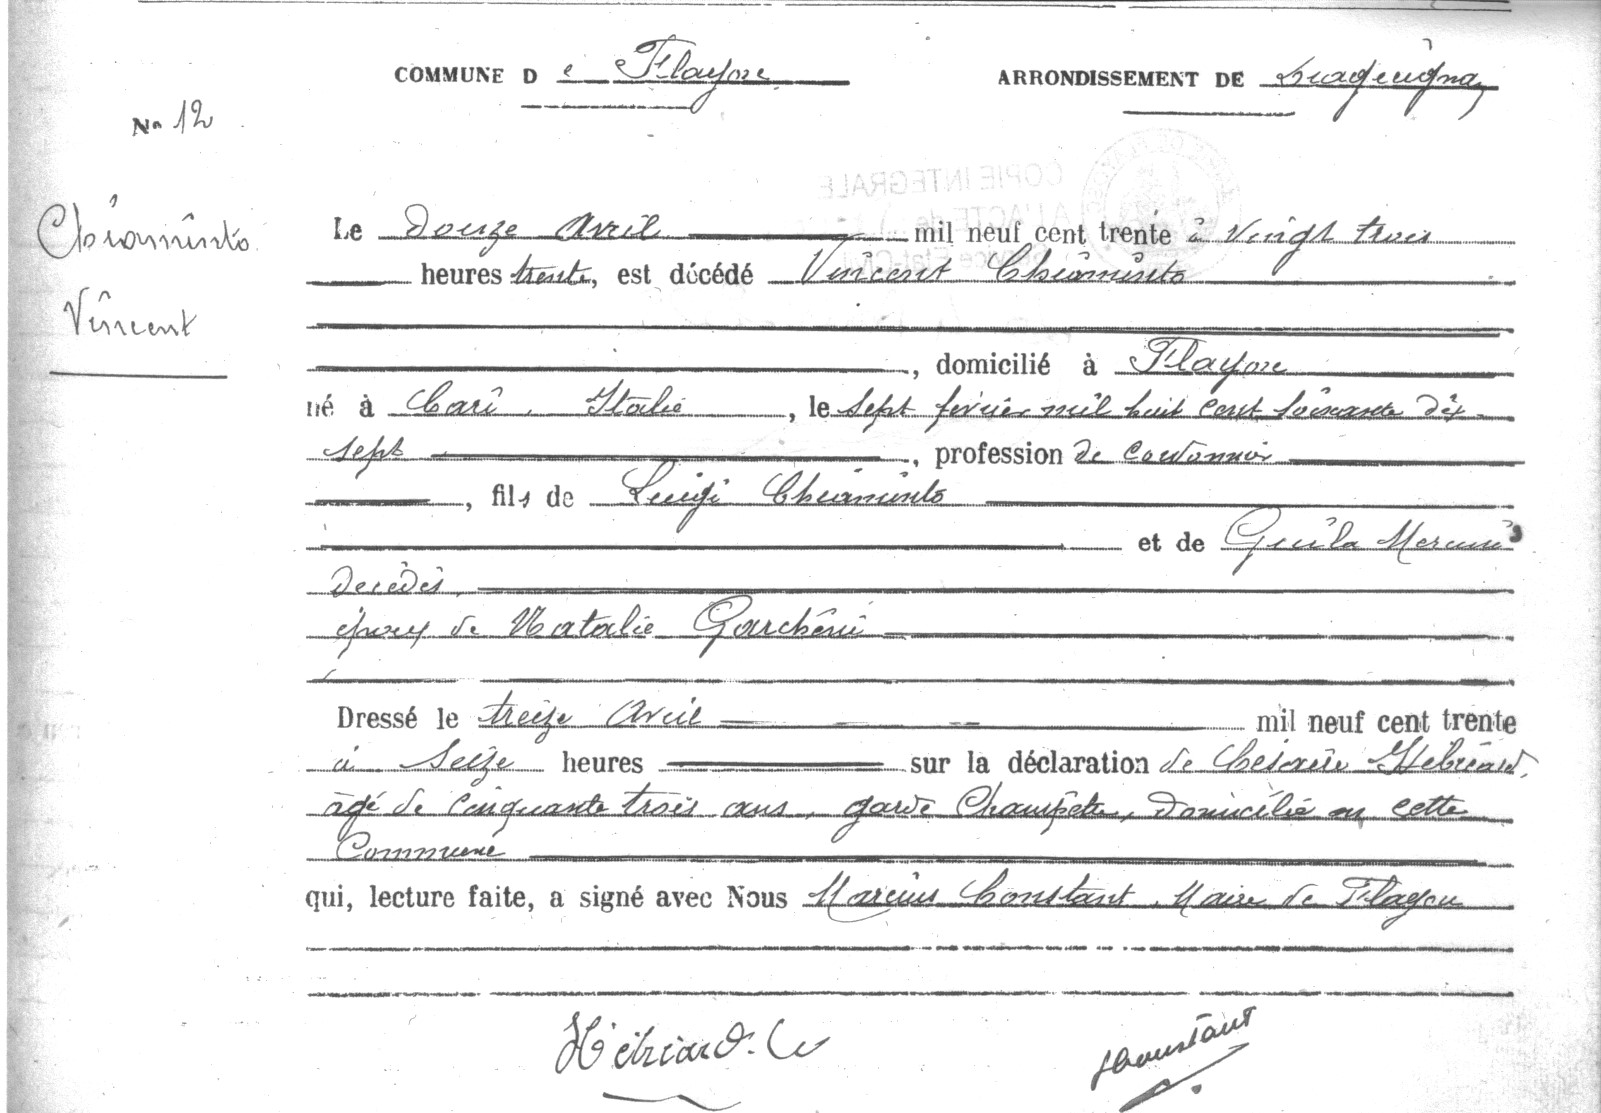 COMMUNE De Flayosc ARRONDISSEMENT DE Draguignan
No 12
Chiaminto
Vincent
Le Douze Avril mil neuf cent trente à Vingt trois
heures trente, est décédé Vincent Chiaminto
, domicilié à Flayosc
né à Bari, Italie, le sept février mil huit cent soixante dix
sept, profession de Cordonnier
, fils de Luigi Chiaminto
et de
Décédés
époux de Natalie Garchéni
Dressé le treize Avril mil neuf cent trente
à Seize heures sur la déclaration de Césaire Hébréard,
âgé de Cinquante trois ans, garde Champêtre, domicilié en cette
Commune
qui, lecture faite, a signé avec Nous Marius Constant, Maire de Flayosc
COPIE INTEGRALE
Hébréard. C
Constant